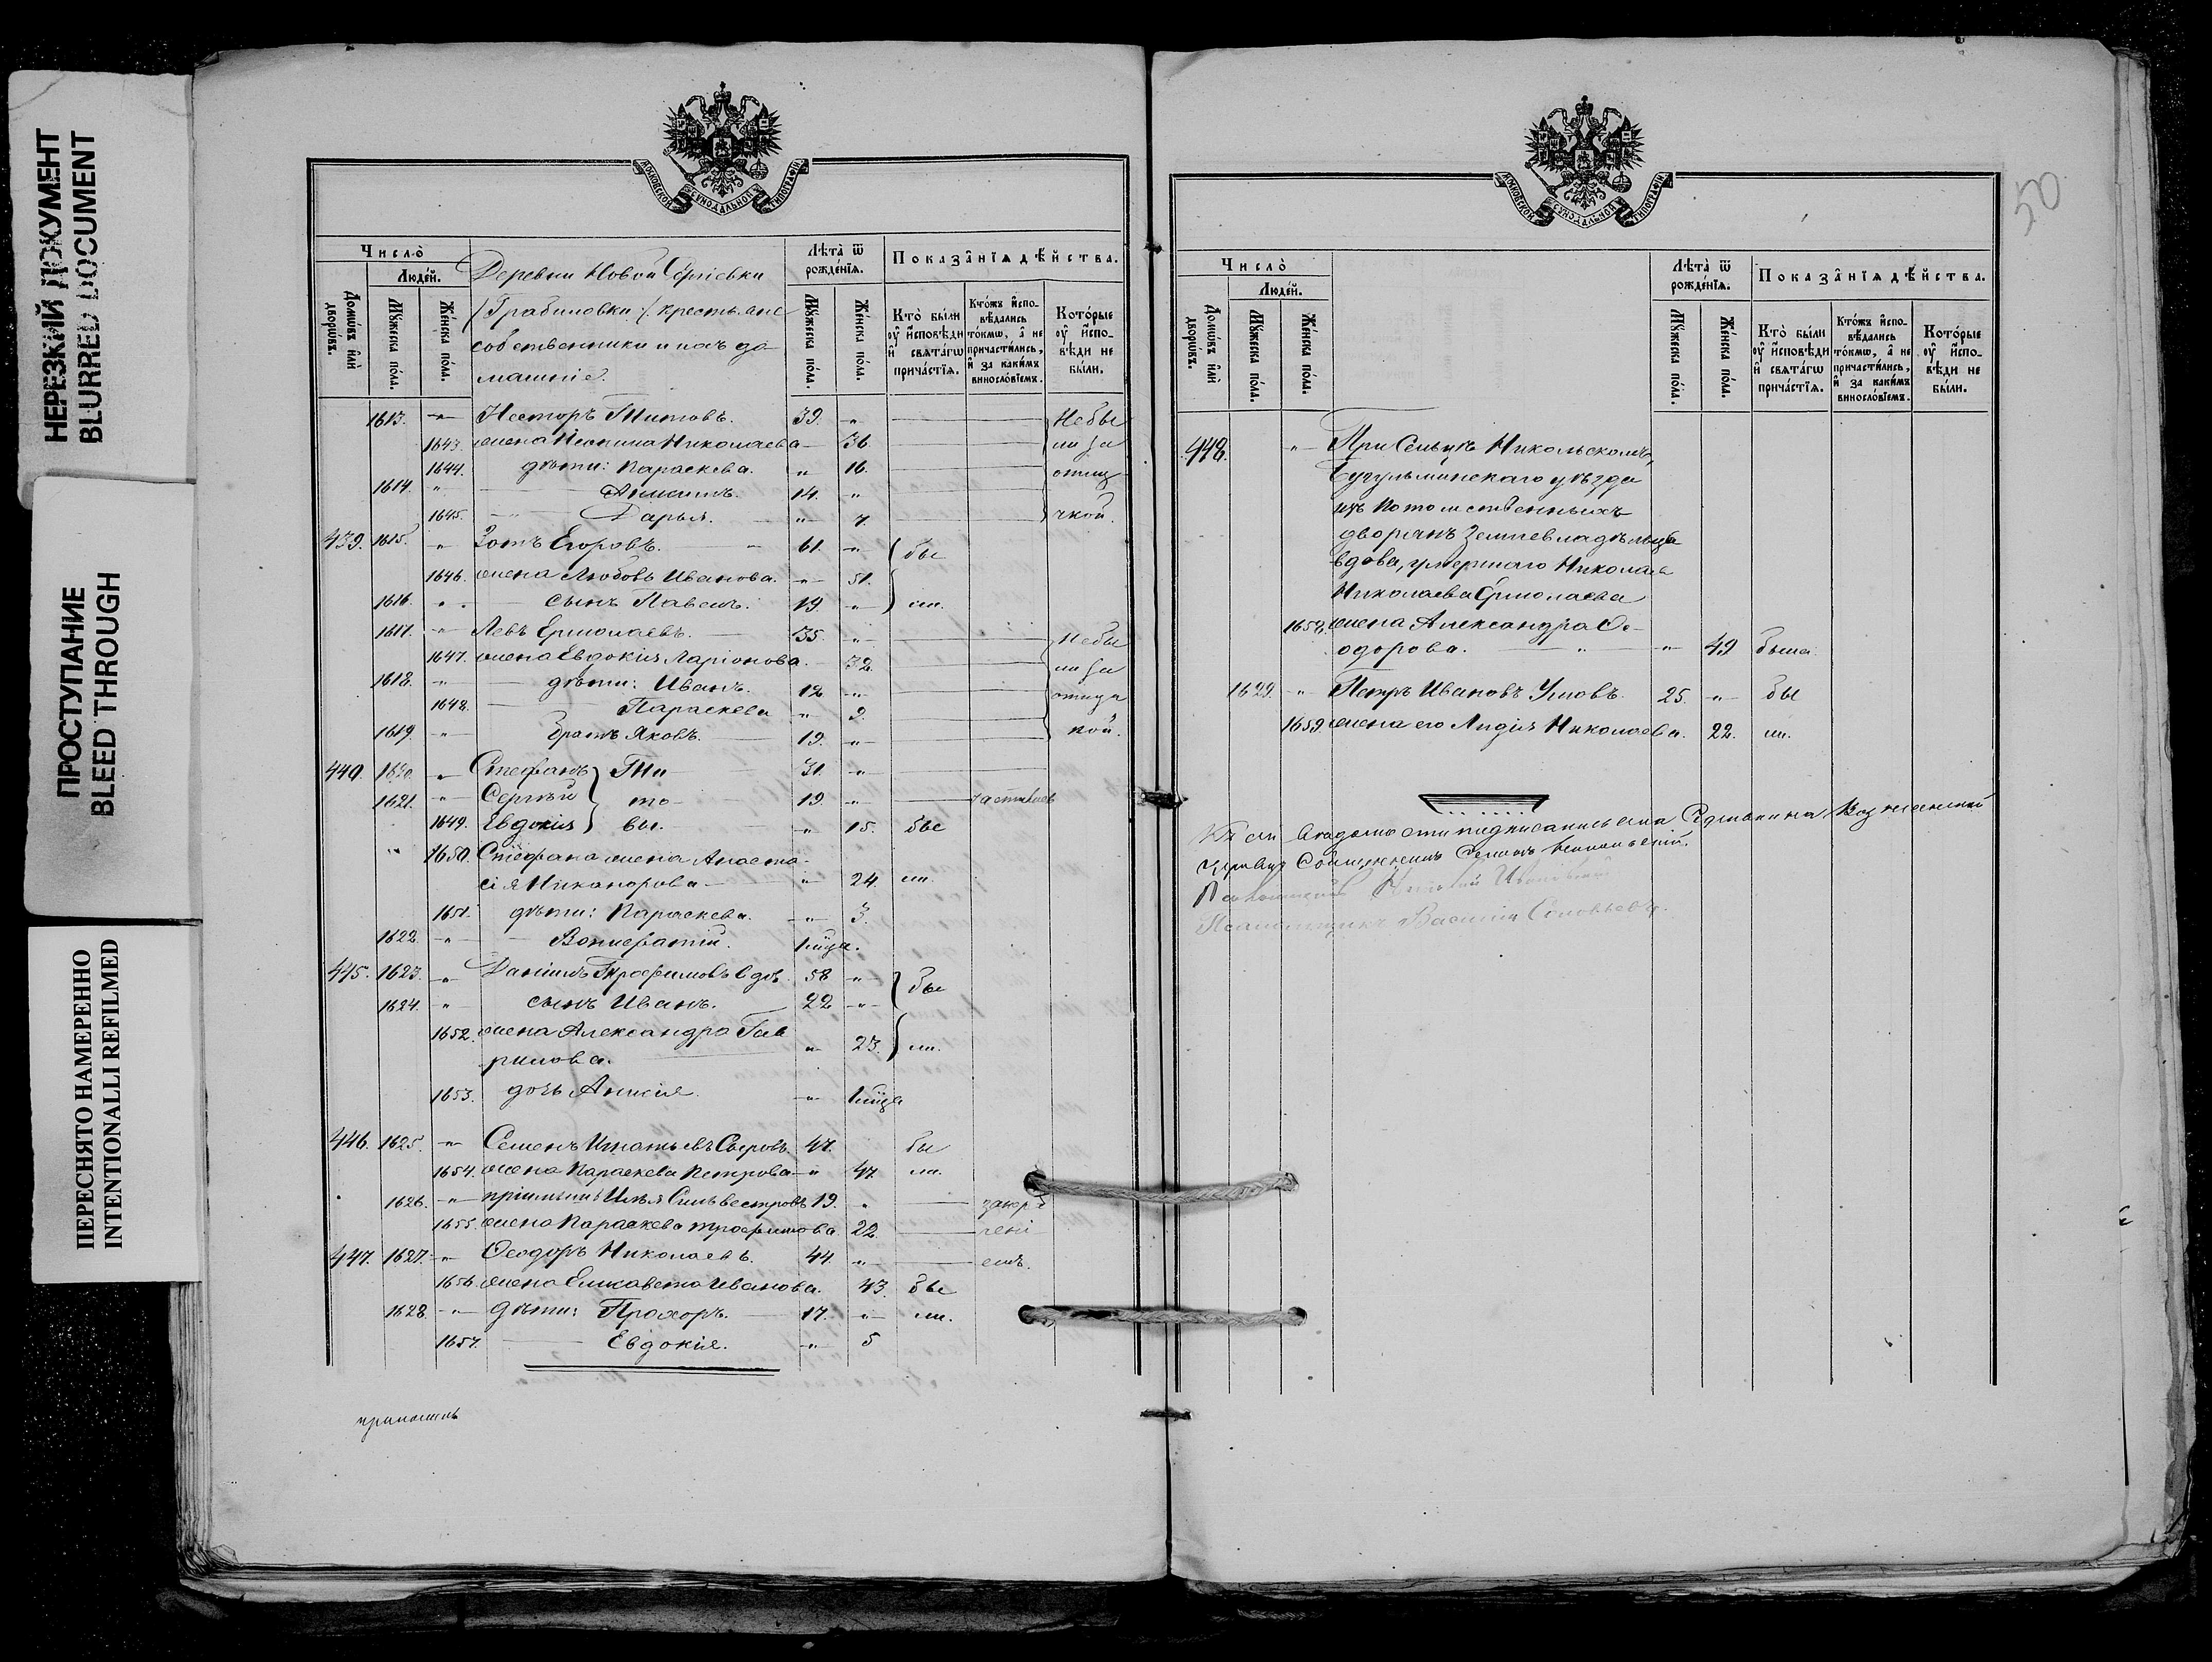 НЕРЕЗКИЙ ДОКУМЕНТ
BLURRED DOCUMENT
ПРОСТУПАНИЕ
BLEED THROUGH
ПЕРЕСНЯТО НАМЕРЕННО
INTENTIONALLI REFILMED
МОСКОВСКОЙ СѴНОДАЛЬНОЙ ТИПОГРАФІИ
Число̀
Люде́й.
Домѡ́въ и҆лѝ дворѡ́въ.
Мꙋ́жеска по́ла.
Же́нска по́ла.
Деревни Новой Сергіевки
/Грабиловки/. крестьяне
собственники и ихъ до
машніе.
Лѣта̀ ѿ рожде́нїѧ.
Мꙋ́жеска по́ла.
Же́нска по́ла.
Показа̂нїѧ дѣ́йства.
Кто̀ бы́ли оу҆ и҆сповѣди и҆ свѧта́гѡ прича́стїѧ.
Кто́жъ и҆спо- вѣдались то́кмѡ, а҆ не причасти́лись, и҆ за каки́мъ винослові́емъ.
Кото́рые оу҆ и҆спо- вѣди не бы́ли.
1613. -"- Несторъ Титовъ. 39. " Не бы
1643. жена Неонила Николаева - 36. ли за
1644. дѣти: Параскева. " 16. отлу
1614. " 14. "
1645. Дарья. " 7. чкой.
439. 1615. " Зотъ Егоровъ. 61. " бы
1646. жена Любовь Иванова. " 51.
1616. " сынъ Павелъ. 19. " ли.
1617. " Левъ Ермолаевъ. 35. " Не бы
1647. жена Евдокия Ларіонова. 32. ли за
1618. " дѣти: Иванъ. 12 " отлуч
1648. Параскева " 9.
1619. " братъ Яковъ. 19. " кой.
440. 1620. " Стефанъ } Ти 31. "
1621. " Сергѣй } то 19. "
1649. Евдокия } вы. " 15. бы
1650. Стефана жена Анаста
сія Никанорова " 24. ли.
1651. дѣти: Параскева. " 3.
1622. " Вонифатій.
445. 1623. " Даніилъ Трофимовъ вдв. 58 " бы
1624. " сынъ Иванъ. 22 "
1652. жена Александра Гав
рилова. " 23. ли.
1653. дочь Анисія. "
446. 1625. " Семенъ Игнатьевъ 47. бы
1654. жена Параскева Петрова " 47. ли.
1626. " пріимышъ Илья Сильвестровъ 19. "
1655. жена Параскева Трофимова 22
447. 1627. " Ѳеодоръ Николаевъ. 44. "
1656. жена Елисавета Иванова. 43. бы
1628. " дѣти: Прохоръ. 17. " ли.
1657. Евдокія. " 5
50
МОСКОВСКОЙ СѴНОДАЛЬНОЙ ТИПОГРАФІИ
Число̀
Люде́й.
Домѡ́въ и҆лѝ дворѡ́въ.
Мꙋ́жеска по́ла.
Же́нска по́ла.
Лѣта̀ ѿ рожде́нїѧ.
Мꙋ́жеска по́ла.
Же́нска по́ла.
Показа̂нїѧ дѣ́йства.
Кто̀ бы́ли оу҆ и҆сповѣди и҆ свѧта́гѡ прича́стїѧ.
Кто́жъ и҆спо- вѣдались то́кмѡ, а҆ не причасти́лись, и҆ за каки́мъ винослові́емъ.
Кото́рые оу҆ и҆спо- вѣди не бы́ли.
448. " При Сельцѣ Никольскомъ,
Бугульминскаго уѣзда
изъ Потомственныхъ
дворянъ Землевладѣльца
вдова, умершаго Николая
Николаева Ермолаева
1658. жена Александра Ѳе-
одорова. " " 49 была.
1629. " Петръ Ивановъ Умовъ. 25. " бы
1659. жена его Лидія Николаева. 22. ли.
Къ сей подписались села
церкви Священникъ
Псаломщикъ Василій Соловьевъ.